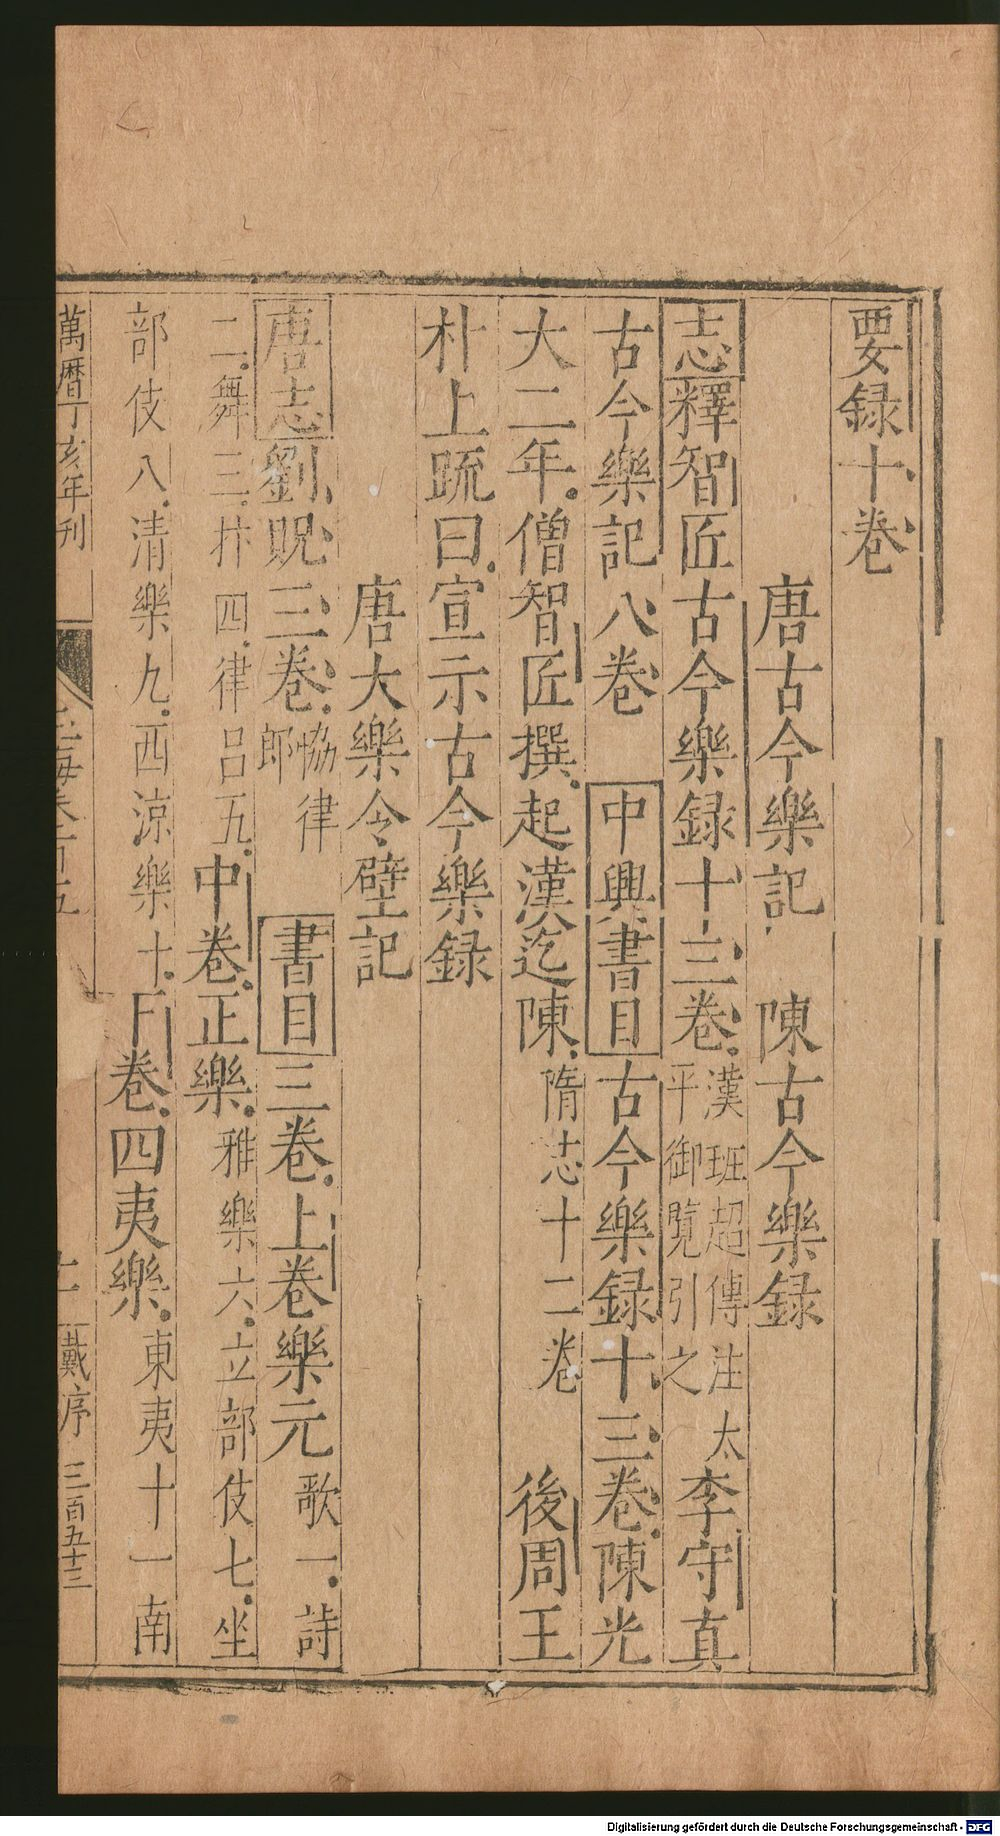 要録十卷
唐古今樂記　陳古今樂録
志釋智匠古今樂録十三卷漢班超傳注太平御覧引之李守真
古今樂記八卷　中興書目古今樂録十三卷陳光
大二年僧智匠撰起漢迄陳隋志十二卷　後周王
朴上䟽曰宣示古今樂録
唐大樂令壁記
唐志劉貺三卷協律郎　書目三卷上卷樂元歌一詩
二舞三抃四律吕五中卷正樂雅樂六立部伎七坐
部伎八清樂九西涼樂十下卷四夷樂東夷十一南
萬曆丁亥年刊
戴序三百五十三
Digitalisierung gefördert durch die Deutsche Forschungsgemeinschaft - DFG